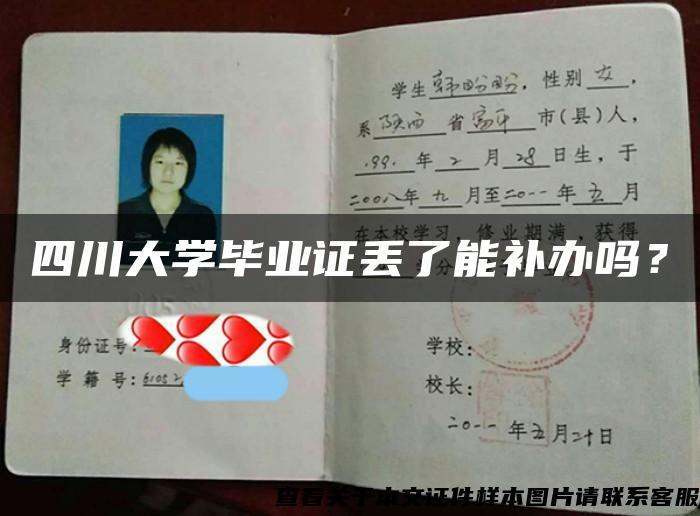 学生韩盼盼，性别女，
系陕西省富平市(县)人，
1991年2月28日生，于
二00八年九月至二0一一年五月
在本校学习，修业期满，获得
四川大学毕业证丢了能补办吗？
身份证号：
学籍号：61052
学校：
校长：
二0一一年五月二十日
查看关于本文证件样本图片请联系客服